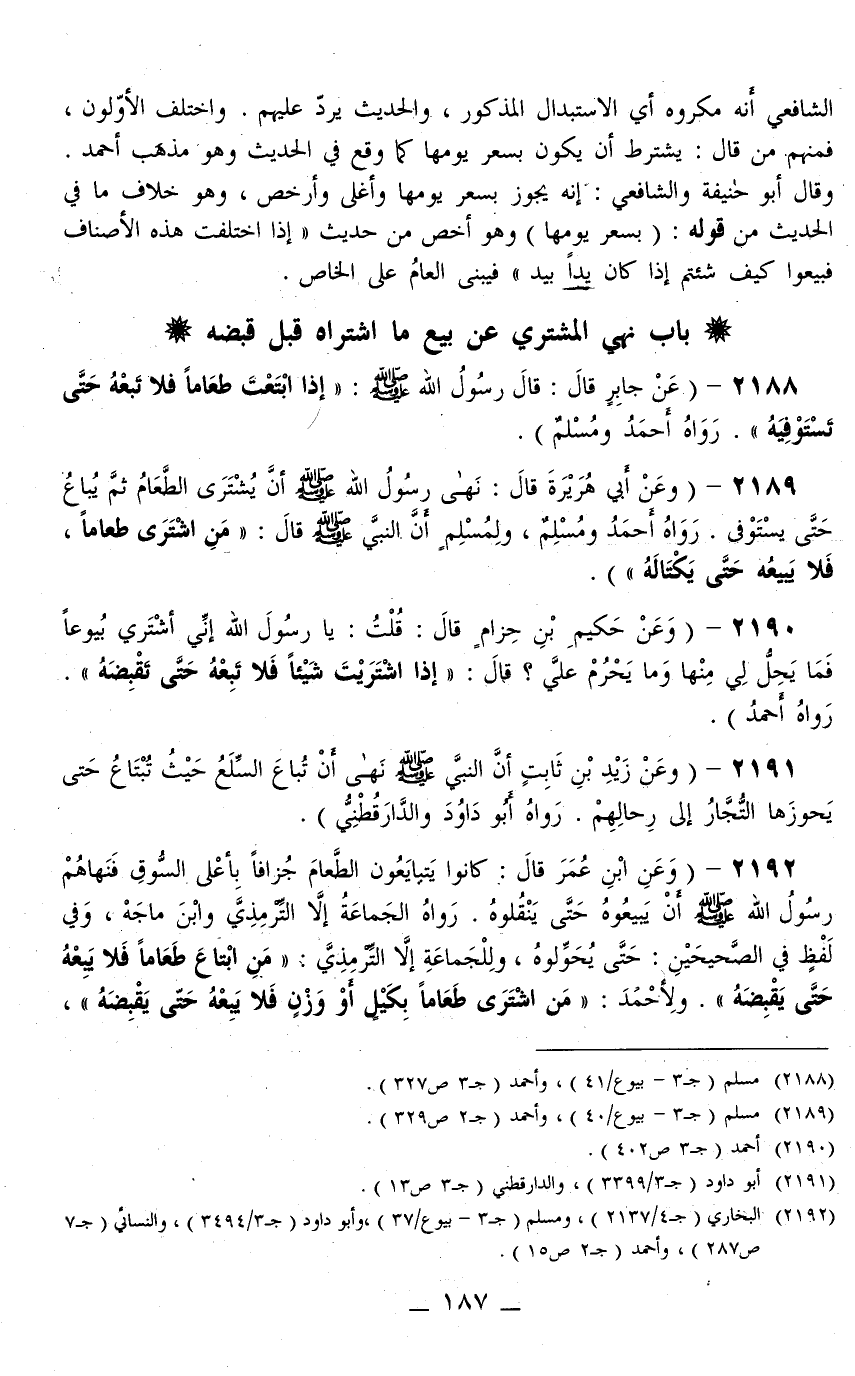 الشافعي أَنه مكروه أي الاستبدال المذكور ، والحديث يردّ عليهم . واختلف الأوّلون ،
فمنهم من قال : يشترط أن يكون بسعر يومها كما وقع في الحديث وهو مذهب أحمد .
وقال أبو حنيفة والشافعي : إنه يجوز بسعر يومها وأغلى وأرخص ، وهو خلاف ما في
الحديث من قوله : ( بسعر يومها ) وهو أخص من حديث « إذا اختلفت هذه الأصناف
فبيعوا كيف شئتم إذا كان يداً بيد » فيبنى العامُ على الخاص .
باب نهي المشتري عن بيع ما اشتراه قبل قبضه
٢١٨٨ – ( عَنْ جابِرٍ قالَ : قالَ رسُولُ الله ﷺ : « إذا ابْتَعْتَ طعَاماً فلا تَبعْهُ حَتَّى
تَسْتَوْفِيَهُ » . رَوَاهُ أَحمَدُ ومُسْلمٌ ) .
٢١٨٩ – ( وعَنْ أَبي هُرَيْرَةَ قالَ : نَهـٰى رسُولُ الله ﷺ أنَّ يُشْتَرَى الطَّعَامُ ثمَّ يُباعُ
حَتَّى يستَوْفى . رَوَاهُ أَحمَدُ ومُسْلِمٌ ، ولِمُسْلِمٍ أَنَّ النبيَّ ﷺ قالَ : « مَنِ اشْتَرَى طعاماً ،
فَلا يَبيعُه حَتَّى يَكْتَالَهُ » ) .
٢١٩٠ – ( وَعَنْ حَكيمِ بْنِ حِزامٍ قالَ : قُلْتُ : يا رسُولَ الله إنِّي أشْتَري بُيوعاً
فَمَا يَحِلُّ لِي مِنْها وَما يَحْرُمْ عليَّ ؟ قالَ : « إذا اشْتَرَيْتَ شَيْئاً فَلا تَبِعْهُ حَتَّى تَقْبِضَهُ » .
رَواهُ أَحمدُ ) .
٢١٩١ – ( وعَنْ زَيْدِ بْنِ ثَابِتٍ أنَّ النبيَّ ﷺ نَهـٰى أَنْ تُباعَ السِّلَعُ حَيْثُ تُبْتَاعُ حَتى
يَحوزَها التُّجَّارُ إلى رِحالِهِمْ . رَواهُ أَبُو دَاوُدَ والدَّارَقُطْنِيُّ ) .
٢١٩٢ – ( وَعَنِ ابْنِ عُمَرَ قالَ : كانوا يَتبايَعُون الطَّعامَ جُزافاً بِأعْلى السُّوقِ فَنَهاهُمْ
رسُولُ الله ﷺ أَنْ يَبيعُوهُ حَتَّى يَنْقُلوهُ . رَواهُ الجَماعَةُ إلَّا التِّرْمِذيَّ وابْنَ ماجَهْ ، وَفي
لَفْظٍ في الصَّحيحَيْنِ : حَتَّى يُحَوِّلوهُ ، ولِلْجَماعَةِ إلَّا التِّرْمِذيَّ : « مَنِ ابْتاعَ طَعَاماً فَلا يَبِعْهُ
حَتَّى يَقْبِضَهُ » . ولِأَحْمَدَ : « مَن اشْتَرَى طَعَاماً بِكَيْلٍ أَوْ وَزْنٍ فَلا يَبِعْهُ حَتّى يَقْبِضَهُ » ،
(٢١٨٨) مسلم ( جـ٣ – بيوع/٤١ ) ، وأحمد ( جـ٣ ص٣٢٧ ) .
(٢١٨٩) مسلم ( جـ٣ – بيوع/٤٠ ) ، وأحمد ( جـ٢ ص٣٢٩ ) .
(٢١٩٠) أحمد ( جـ٣ ص٤٠٢ ) .
(٢١٩١) أبو داود ( جـ٣/٣٣٩٩ ) ، والدارقطني ( جـ٣ ص١٣ ) .
(٢١٩٢) البخاري ( جـ٤/٢١٣٧ ) ، ومسلم ( جـ٣ – بيوع/٣٧ ) ،وأبو داود ( جـ٣/٣٤٩٤ ) ، والنسائي ( جـ٧
ص٢٨٧ ) ، وأحمد ( جـ٢ ص١٥ ) .
— ١٨٧ —